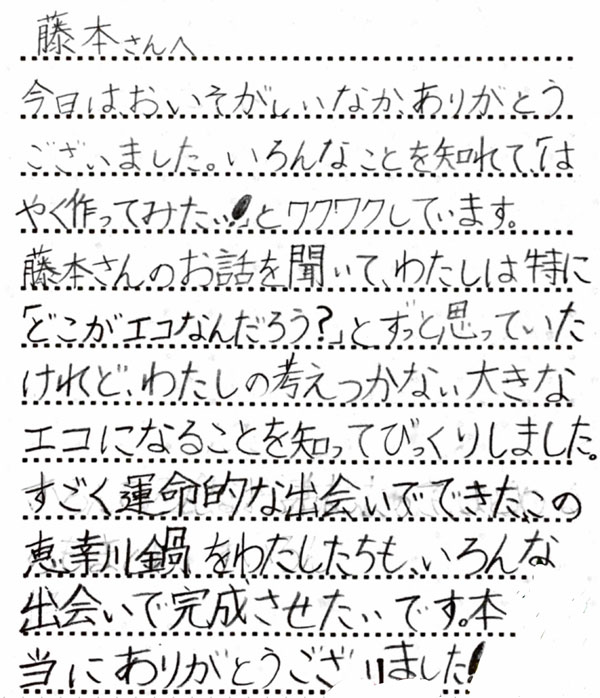 藤本さんへ
今日は、おいそがしいなか、ありがとう
ございました。いろんなことを知れて、「は
やく作ってみたい!」とワクワクしています。
藤本さんのお話を聞いて、わたしは特に
「どこがエコなんだろう?」とずっと思っていた
けれど、わたしの考えつかない大きな
エコになることを知ってびっくりしました。
すごく運命的な出会いでできた、この
恵幸川鍋をわたしたちも、いろんな
出会いで完成させたいです。本
当にありがとうございました!